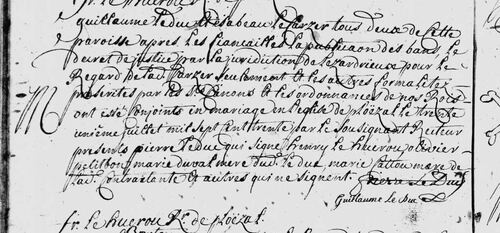 fr. le huerou
guillaume le duc et isabeau le parzer tous deux de cette
paroisse apres les fiancailles la publicaon des bans le
decret de justice par la juridiction de pour le
Regard de lad. parzer seulement et les autres formalités
prescrites par les Sts canons et les ordonnances de nos Rois
ont été conjoints en mariage en l'eglise de ploëzal le trente
unieme juillet mil sept cent trente par le soussignant Recteur
presents pierre le duc qui signe henry le huerou ollivier
petitbon marie mere dud. le duc, marie mere de
lad. contractante et autres qui ne signent. Pierre Le Duc
Guillaume le Duc
fr. le huerou Rr. de ploëzal.